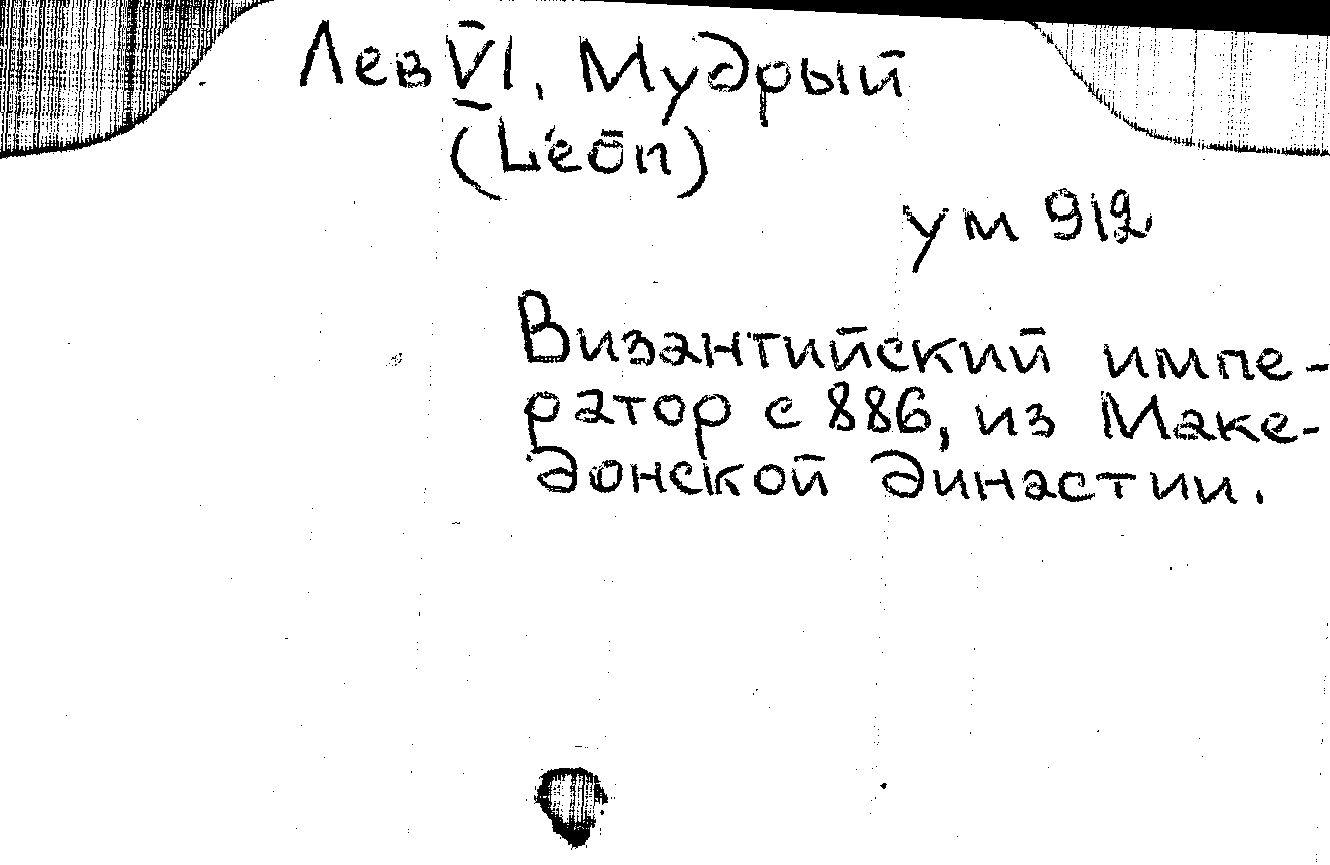 Лев VI, Мудрый
(Léōn)
ум 912
Византийский импе-
ратор с 886, из Маке-
донской династии.